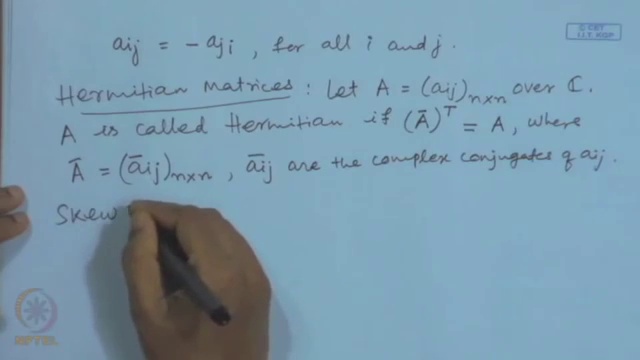 © CET
I.I.T. KGP
aij = - aji , for all i and j.
Hermitian Matrices : Let A = (aij)n×n over ℂ.
A is called Hermitian if (Ā)ᵀ = A, where
Ā = (āij)n×n , āij are the complex conjugates of aij.
Skew
NPTEL